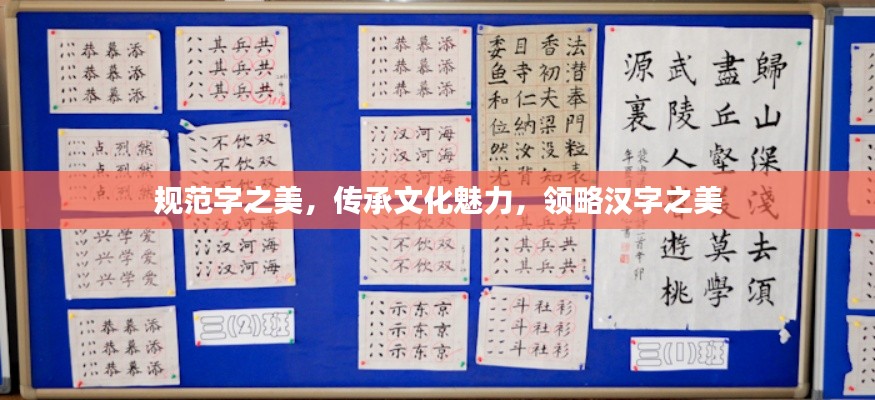 规范字之美，传承文化魅力，领略汉字之美
恭慕添
恭慕添
恭慕添
其兵共
其兵共
其兵共
点烈然
不饮双
不饮双
汉河海
汉河海
兴学爱
兴学爱
兴学爱
恭慕添
恭慕添
恭慕添
三(2)班
恭慕添
恭慕添
恭慕添
汉河海
汉河海
不饮双
不饮双
示东京
示东京
示东京
法潜奉門粒表
香初夫梁没知
目寺仁納汝背
委鱼和位然光
其兵共
其兵共
斗社衫
斗社衫
斗社衫
歸山深淺去須
盡丘壑莫學
武陵人遊桃
源裏
三(1)班